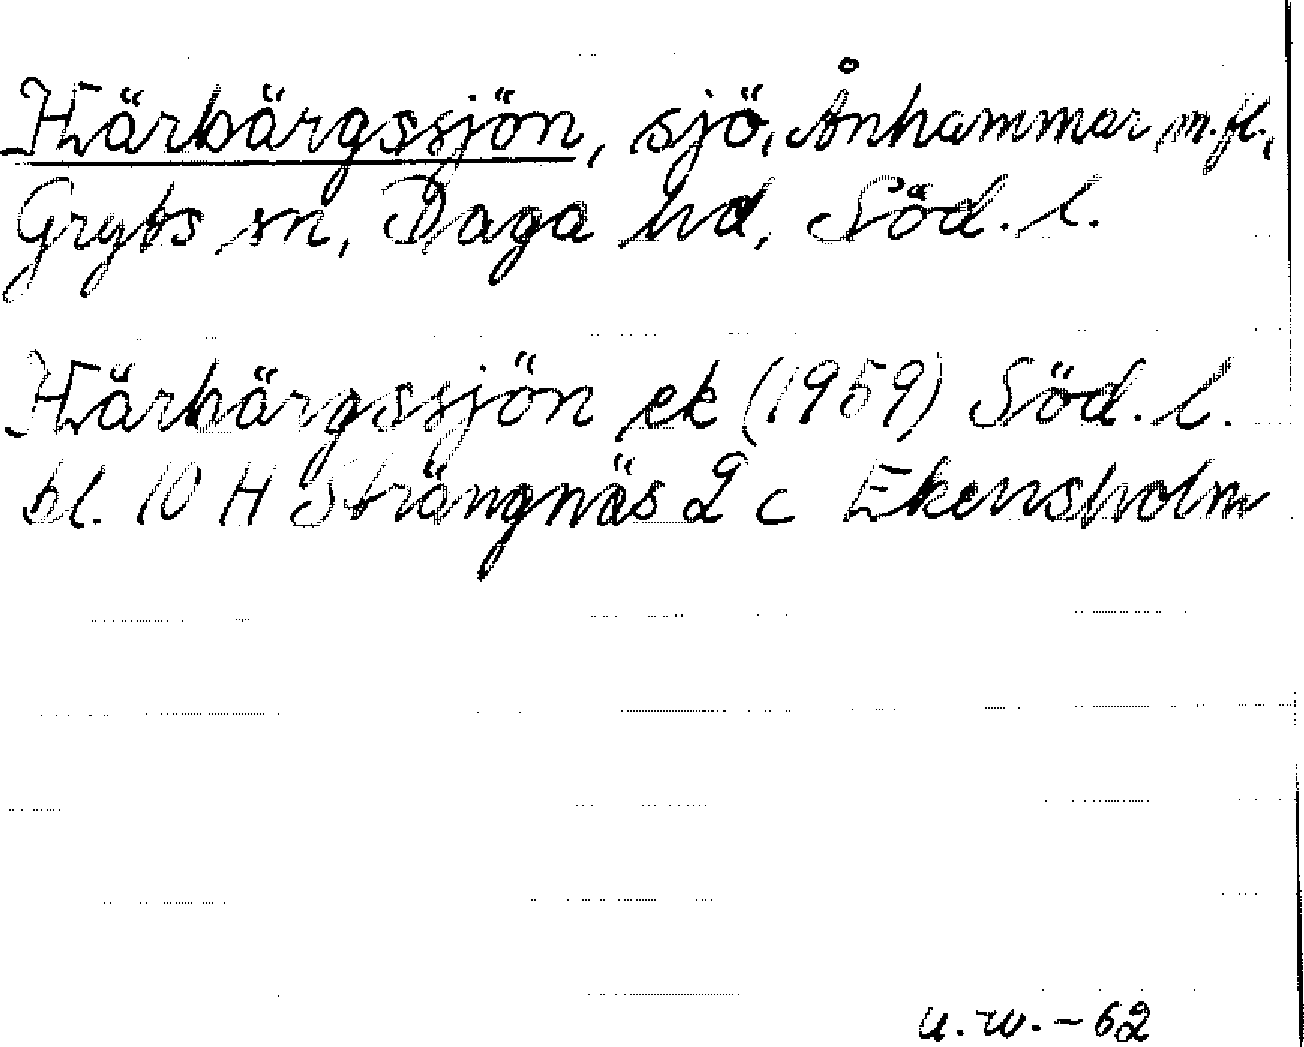 Härbärgssjön, sjö, Ånhammar m.fl.,
Gryts sn, Daga hd, Söd. l.
Härbärgssjön ek (1959) Söd. l.
bl. 10 H Strängnäs 2 c Ekensholm
u.w. - 62